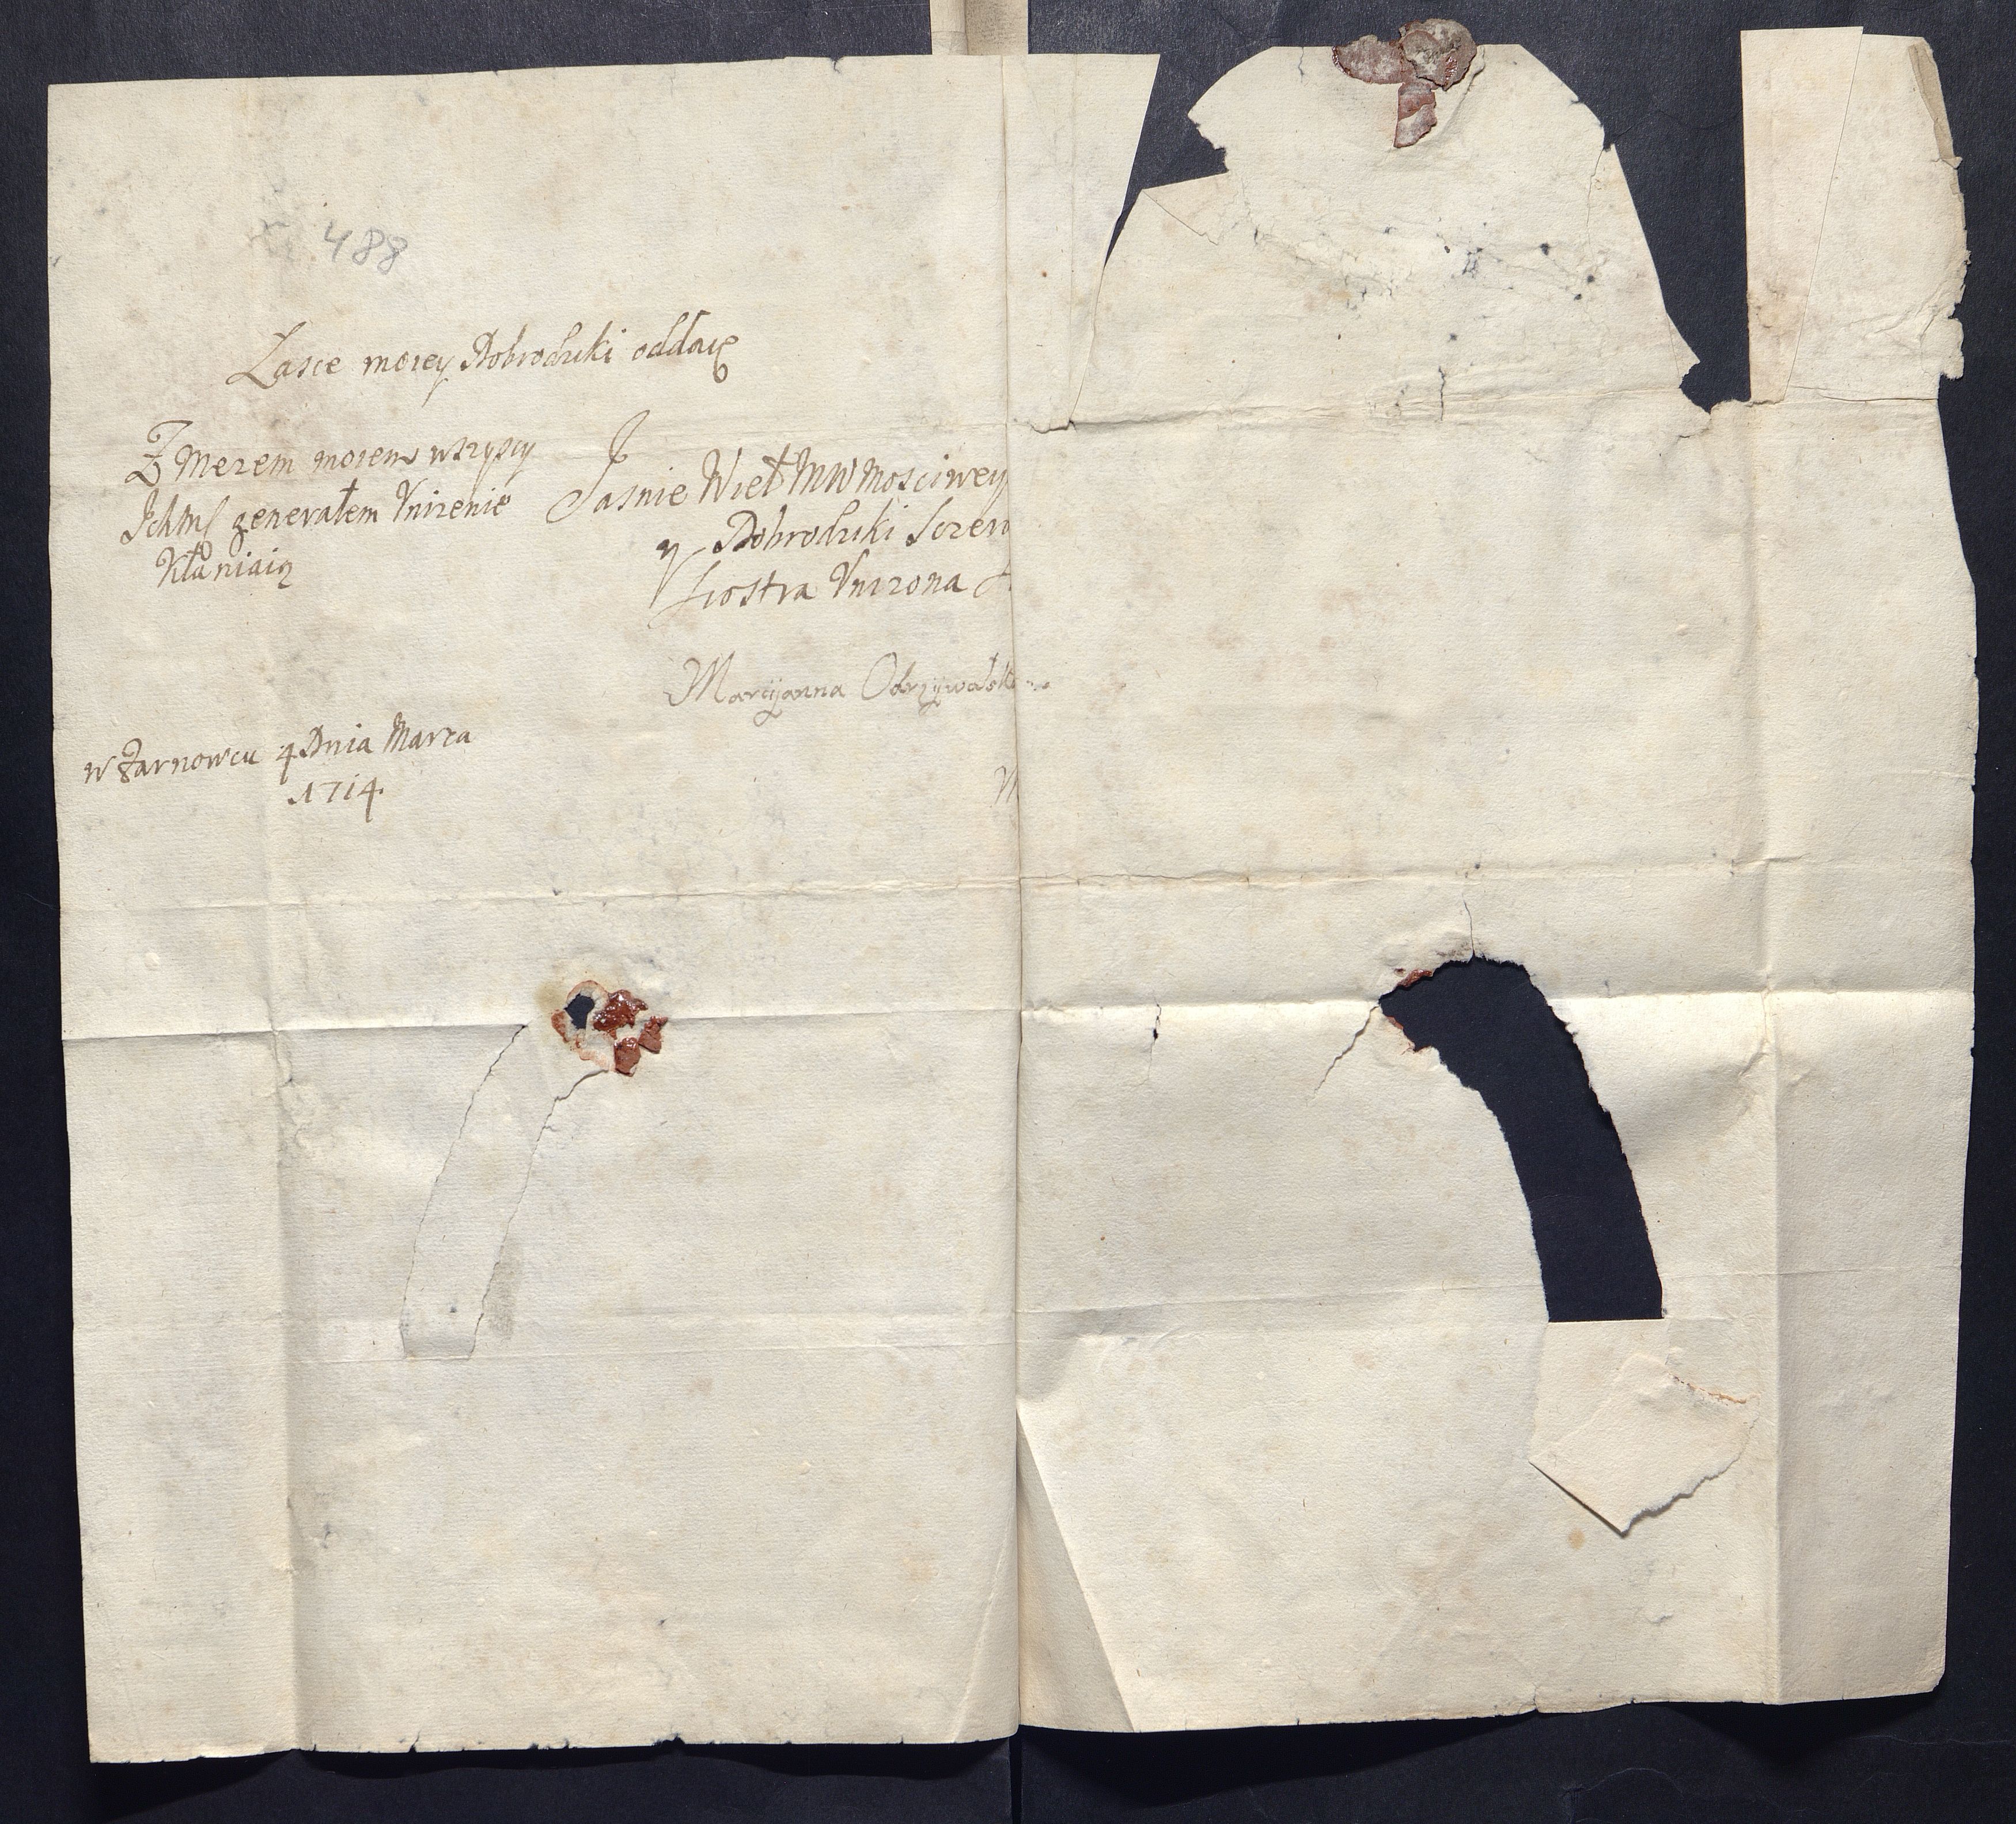 488
Łasce moiey Dobrodziki oddaię
Z Męzem moiem wszyscy
Ichmś generałem Vnizenie
Kłaniaią
J
Jasnie Wiel MW Mosciwey
y Dobrodziki Szczer
Siostra Vnizona
Maryjanna Odrzywolsk
w Żarnowcu 4 Dnia Marca
1714